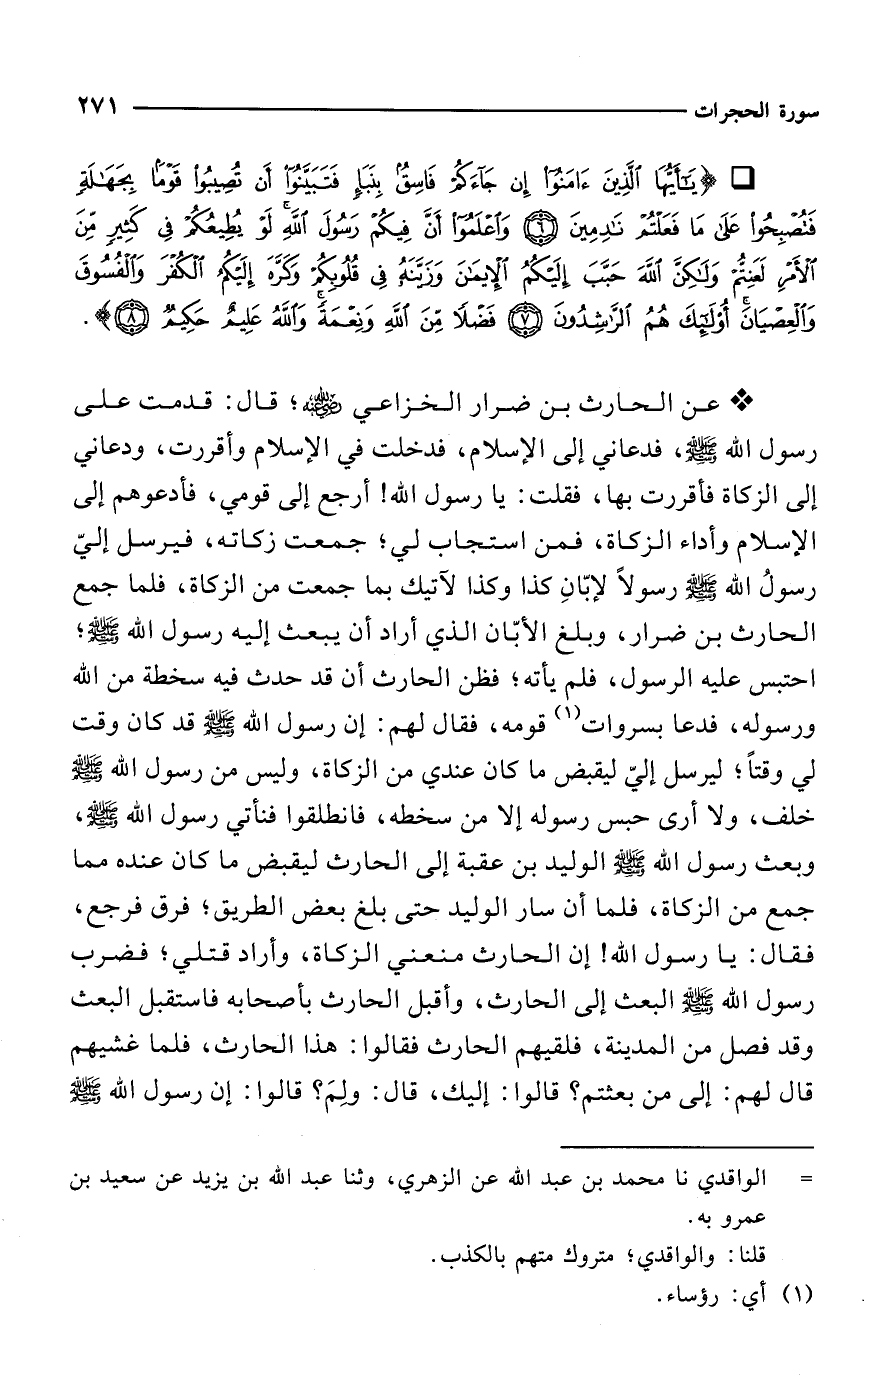 سورة الحجرات ٢٧١
□ ﴿يَٰٓأَيُّهَا ٱلَّذِينَ ءَامَنُوٓا۟ إِن جَآءَكُمْ فَاسِقٌۢ بِنَبَإٍ فَتَبَيَّنُوٓا۟ أَن تُصِيبُوا۟ قَوْمًۢا بِجَهَٰلَةٍ
فَتُصْبِحُوا۟ عَلَىٰ مَا فَعَلْتُمْ نَٰدِمِينَ ۝٦ وَٱعْلَمُوٓا۟ أَنَّ فِيكُمْ رَسُولَ ٱللَّهِ ۚ لَوْ يُطِيعُكُمْ فِى كَثِيرٍ مِّنَ
ٱلْأَمْرِ لَعَنِتُّمْ وَلَٰكِنَّ ٱللَّهَ حَبَّبَ إِلَيْكُمُ ٱلْإِيمَٰنَ وَزَيَّنَهُۥ فِى قُلُوبِكُمْ وَكَرَّهَ إِلَيْكُمُ ٱلْكُفْرَ وَٱلْفُسُوقَ
وَٱلْعِصْيَانَ ۚ أُو۟لَٰٓئِكَ هُمُ ٱلرَّٰشِدُونَ ۝٧ فَضْلًا مِّنَ ٱللَّهِ وَنِعْمَةً ۚ وَٱللَّهُ عَلِيمٌ حَكِيمٌ ۝٨﴾.
❖ عـن الـحـارث بـن ضـرار الـخـزاعـي رضي الله عنه؛ قـال: قـدمـت عـلـى
رسول الله ﷺ، فدعاني إلى الإسلام، فدخلت في الإسلام وأقررت، ودعاني
إلى الزكاة فأقررت بها، فقلت: يا رسول الله! أرجع إلى قومي، فأدعوهم إلى
الإسلام وأداء الزكاة، فمن استجاب لي؛ جمعت زكاته، فيرسل إليّ
رسولُ الله ﷺ رسولاً لإبّانِ كذا وكذا لآتيك بما جمعت من الزكاة، فلما جمع
الحارث بن ضرار، وبلغ الأبّان الذي أراد أن يبعث إليه رسول الله ﷺ؛
احتبس عليه الرسول، فلم يأته؛ فظن الحارث أن قد حدث فيه سخطة من الله
ورسوله، فدعا بسروات(١) قومه، فقال لهم: إن رسول الله ﷺ قد كان وقت
لي وقتاً؛ ليرسل إليّ ليقبض ما كان عندي من الزكاة، وليس من رسول الله ﷺ
خلف، ولا أرى حبس رسوله إلا من سخطه، فانطلقوا فنأتي رسول الله ﷺ،
وبعث رسول الله ﷺ الوليد بن عقبة إلى الحارث ليقبض ما كان عنده مما
جمع من الزكاة، فلما أن سار الوليد حتى بلغ بعض الطريق؛ فرق فرجع،
فقال: يا رسول الله! إن الحارث منعني الزكاة، وأراد قتلي؛ فضرب
رسول الله ﷺ البعث إلى الحارث، وأقبل الحارث بأصحابه فاستقبل البعث
وقد فصل من المدينة، فلقيهم الحارث فقالوا: هذا الحارث، فلما غشيهم
قال لهم: إلى من بعثتم؟ قالوا: إليك، قال: ولِمَ؟ قالوا: إن رسول الله ﷺ
= الواقدي نا محمد بن عبد الله عن الزهري، وثنا عبد الله بن يزيد عن سعيد بن
عمرو به.
قلنا: والواقدي؛ متروك متهم بالكذب.
(١) أي: رؤساء.